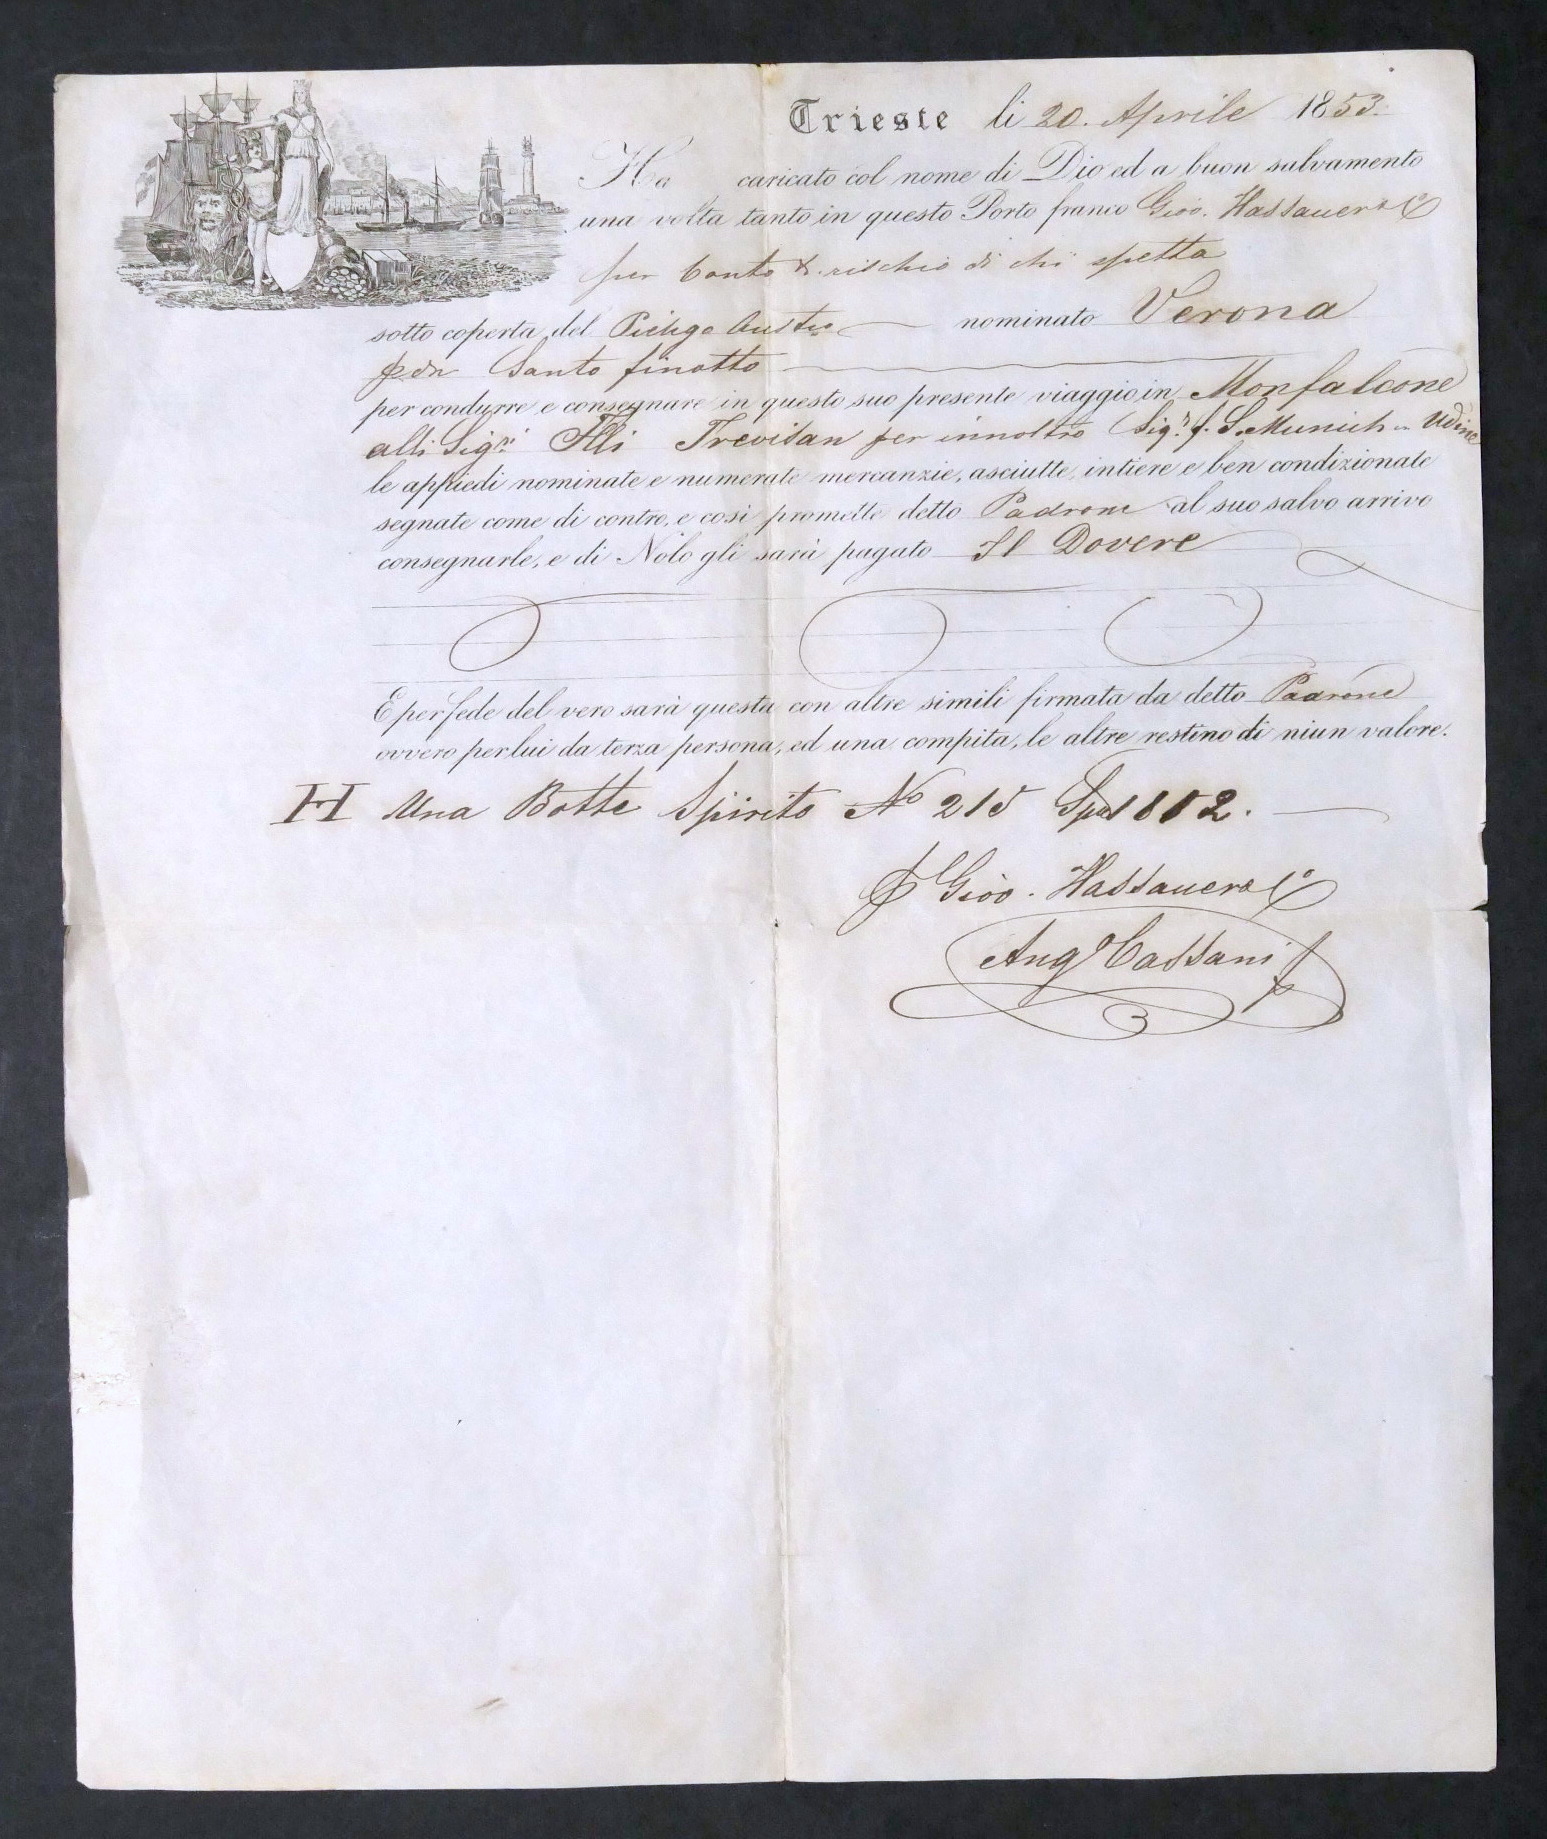 Trieste li 20. Aprile 1853.
Ha caricato col nome di Dio ed a buon salvamento
una volta tanto in questo Porto franco Gio. Hassauer & C°
per Conto & rischio di chi spetta
sotto coperta del Pielego Austr nominato Verona
pdn Santo finotto
per condurre e consegnare in questo suo presente viaggio in Monfalcone
alli Sigri Flli Trevisan per innoltro Sigr. S. Munich in Udine
le appiedi nominate e numerate mercanzie, asciutte, intiere e ben condizionate
segnate come di contro, e così promette detto Padrone al suo salvo arrivo
consegnarle, e di Nolo gli sarà pagato Il Dovere
E per fede del vero sarà questa con altre simili firmata da detto Padrone
ovvero per lui da terza persona, ed una compita, le altre restino di niun valore.
H Una Botte Spirito No 215 1812.
p Gio. Hassauer & C°
Aug Cassani